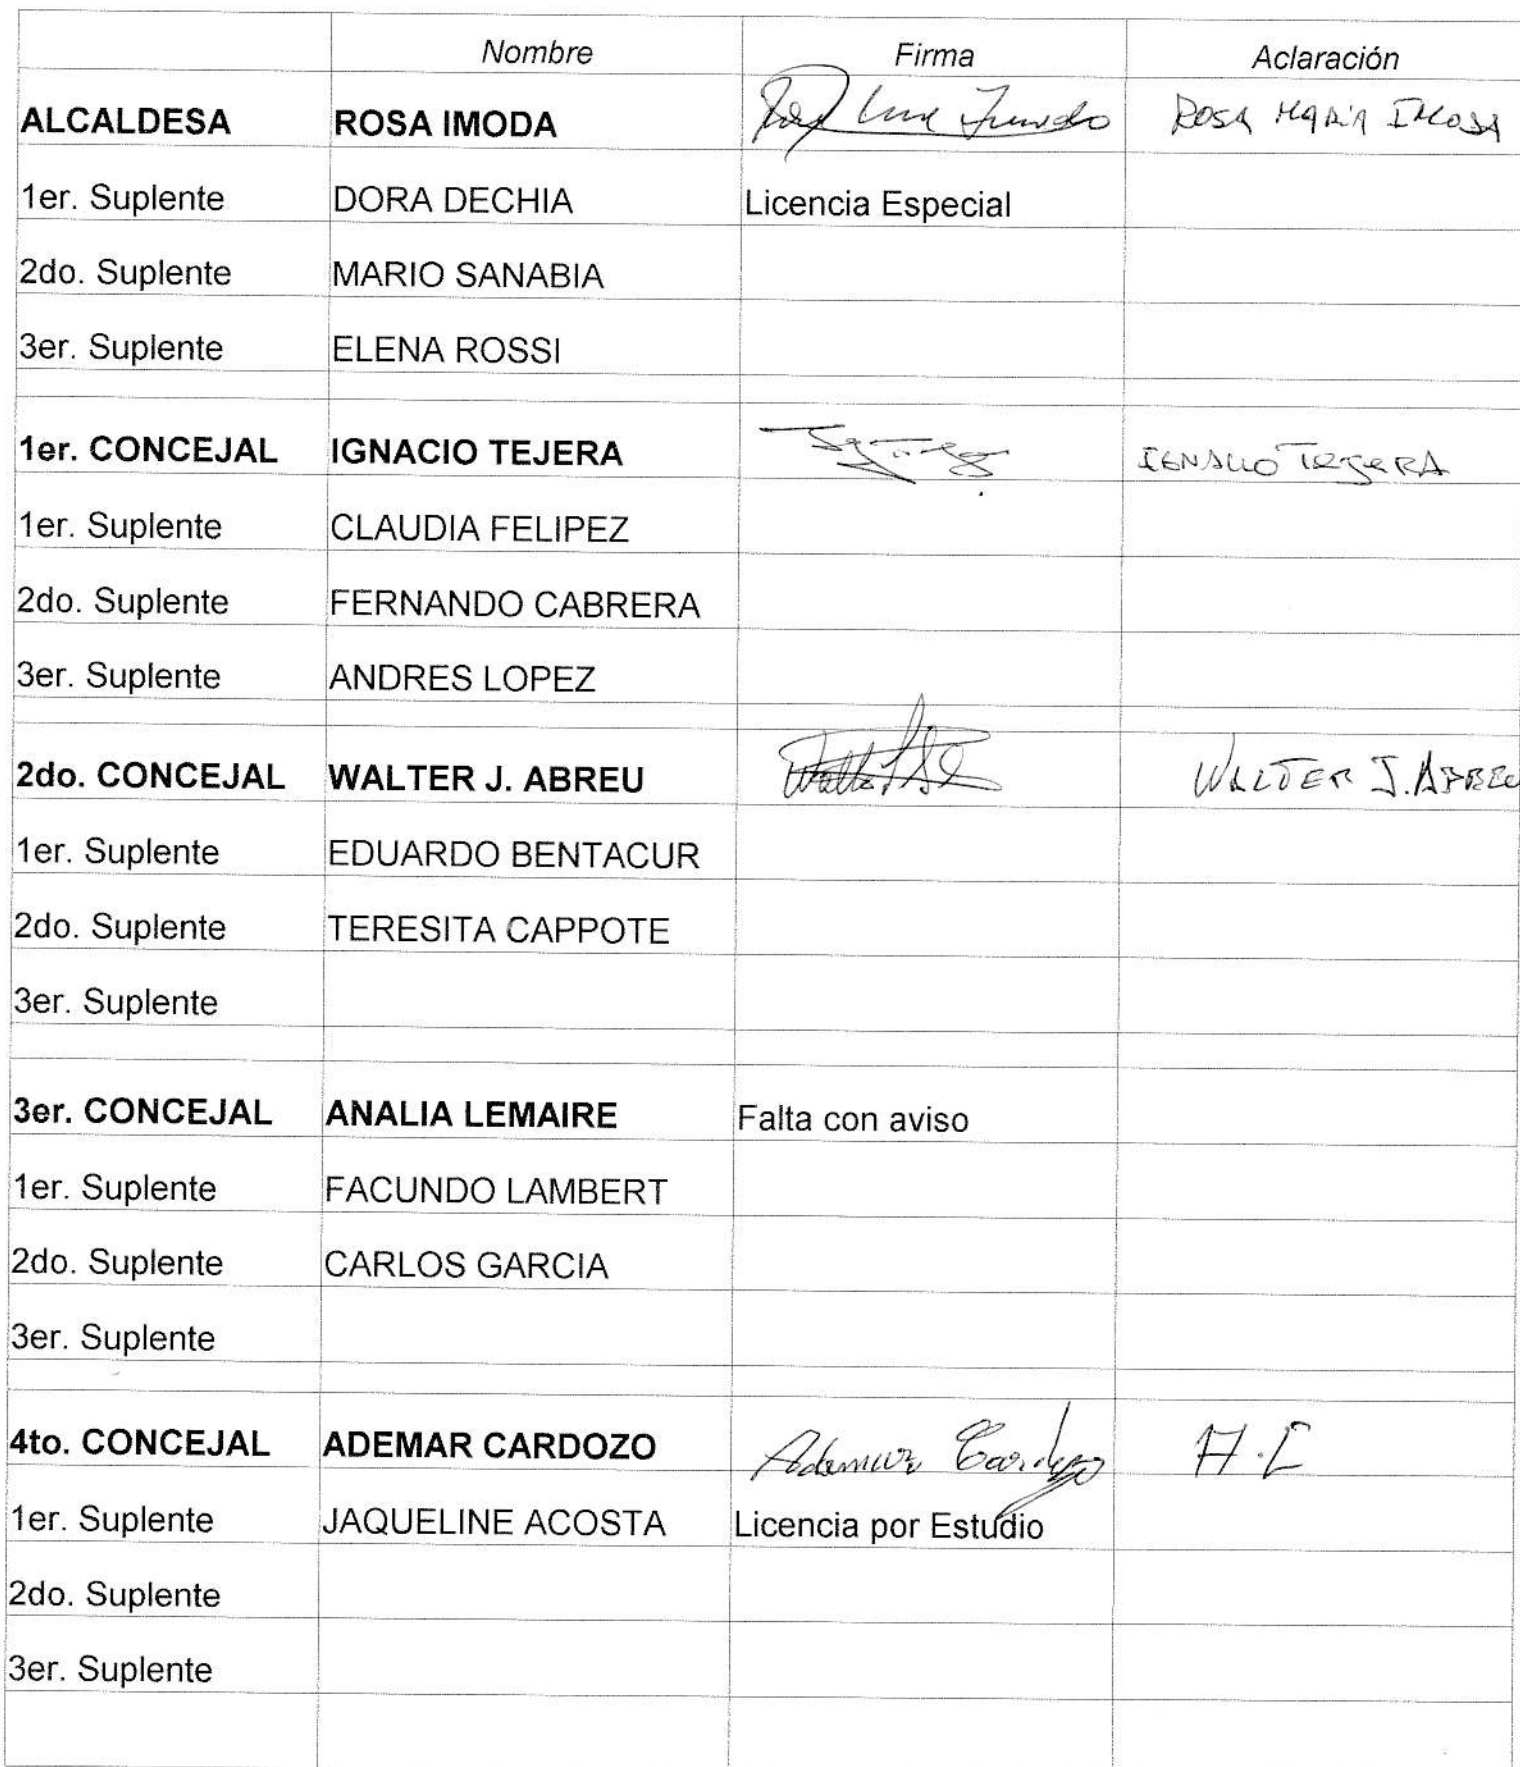 Nombre Firma Aclaración
ALCALDESA ROSA IMODA ROSA MARIA IMODA
1er. Suplente DORA DECHIA Licencia Especial
2do. Suplente MARIO SANABIA
3er. Suplente ELENA ROSSI
1er. CONCEJAL IGNACIO TEJERA IGNACIO TEJERA
1er. Suplente CLAUDIA FELIPEZ
2do. Suplente FERNANDO CABRERA
3er. Suplente ANDRES LOPEZ
2do. CONCEJAL WALTER J. ABREU WALTER J. ABREU
1er. Suplente EDUARDO BENTACUR
2do. Suplente TERESITA CAPPOTE
3er. Suplente
3er. CONCEJAL ANALIA LEMAIRE Falta con aviso
1er. Suplente FACUNDO LAMBERT
2do. Suplente CARLOS GARCIA
3er. Suplente
4to. CONCEJAL ADEMAR CARDOZO Ademar Cardozo A.C
1er. Suplente JAQUELINE ACOSTA Licencia por Estudio
2do. Suplente
3er. Suplente